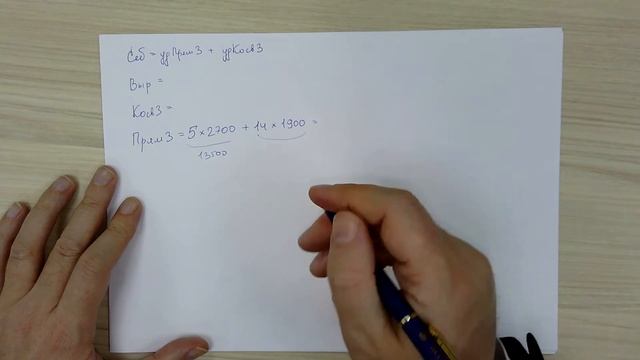 Себ = удПрямЗ + удКосвЗ
Выр =
КосвЗ =
ПрямЗ = 5 × 2700 + 14 × 1900 =
13500